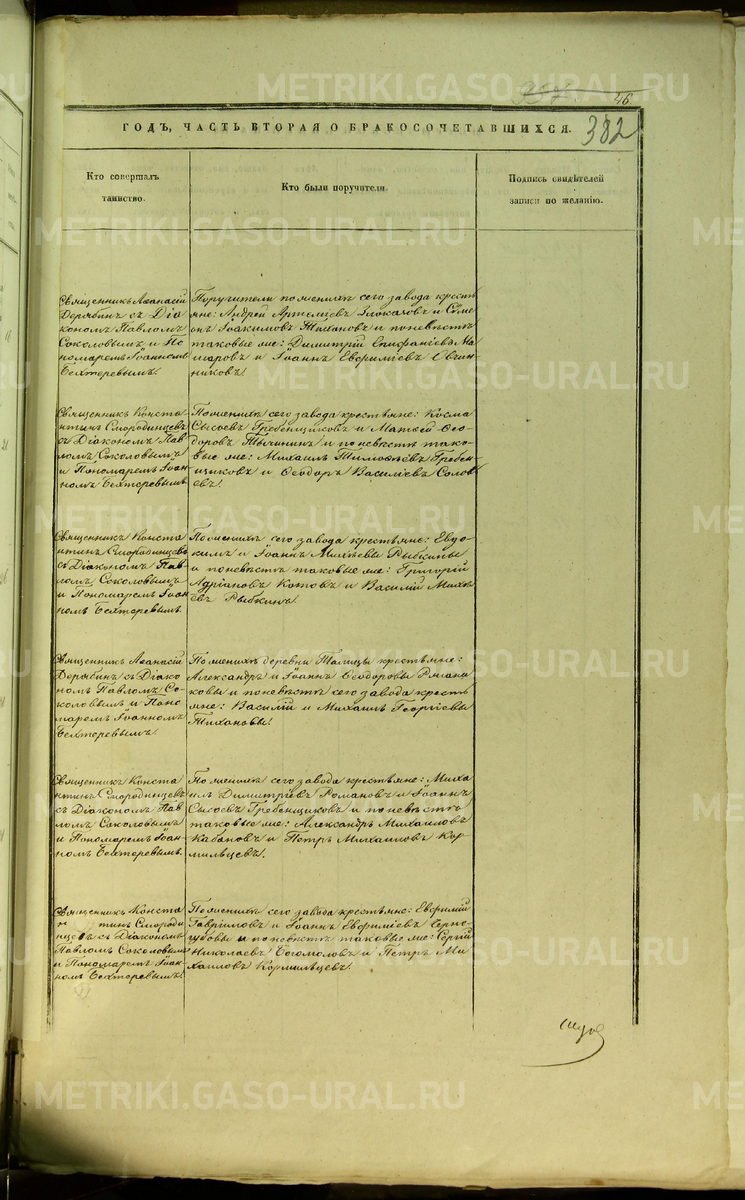 46
382
ГОДЪ, ЧАСТЬ ВТОРАЯ О БРАКОСОЧЕТАВШИХСЯ.
Кто совершалъ
таинство.
Кто были поручители.
Подпись свидѣтелей
записи по желанію.
Священникъ Аѳанасій
Дерябинъ съ Діа
кономъ Павломъ
Соколовымъ и По
номаремъ Іоанномъ
Бехтеревымъ.
Поручители по женихѣ сего завода кресть
яне: Андрей Артемьевъ и Семе
онъ Іоакимовъ Тихановъ и по невѣстѣ
таковые же: Димитрій Епифаніевъ Ма
каровъ и Іоаннъ Евфиміевъ Овчин
никовъ.
Священникъ Конста
нтинъ Смородинцевъ
съ Діакономъ Пав
ломъ Соколовымъ
и Пономаремъ Іоан
номъ Бехтеревымъ
По женихѣ сего завода крестьяне: Косма
Сысоевъ Гребенщиковъ и Матвей Ѳео
доровъ и по невѣстѣ тако
вые же: Михаилъ Тимоѳеевъ Гребен
щиковъ и Ѳеодоръ Василіевъ Солов
евъ.
Священникъ Конста
нтинъ Смородинцевъ
съ Діакономъ Пав
ломъ Соколовымъ
и Пономаремъ Іоан
номъ Бехтеревымъ.
По женихѣ сего завода крестьяне: Евдо
кимъ и Іоаннъ Михѣевы Рыбкины
и по невѣстѣ таковые же: Григорій
Адріановъ Котовъ и Василій Михѣ
евъ Рыбкинъ.
Священникъ Аѳанасій
Дерябинъ съ Діако
номъ Павломъ Со
коловымъ и Поно
маремъ Іоанномъ
Бехтеревымъ.
По женихѣ деревни Талицы крестьяне:
Александръ и Іоаннъ Ѳеодоровы
и по невѣстѣ сего завода кресть
яне: Василій и Михаилъ Георгіевы
Тихановы.
Священникъ Конста
нтинъ Смородинцевъ
съ Діакономъ Пав
ломъ Соколовымъ
и Пономаремъ Іоан
номъ Бехтеревымъ.
По женихѣ сего завода крестьяне: Миха
илъ Димитріевъ Романовъ и Іоаннъ
Сысоевъ Гребенщиковъ и по невѣстѣ
таковые же: Александръ Михаиловъ
Кабановъ и Петръ Михаиловъ Кор
мильцевъ.
Священникъ Конста
нтинъ Смороди
нцевъ съ Діакономъ
Павломъ Соколовымъ
и Пономаремъ Іоан
номъ Бехтеревымъ.
По женихѣ сего завода крестьяне: Евфимій
Гавриловъ и Іоаннъ Евфиміевъ Черно
губовы и по невѣстѣ таковые же: Сергій
Николаевъ Богомоловъ и Петръ Ми
хаиловъ Кормильцевъ.
METRIKI.GASO-URAL.RU